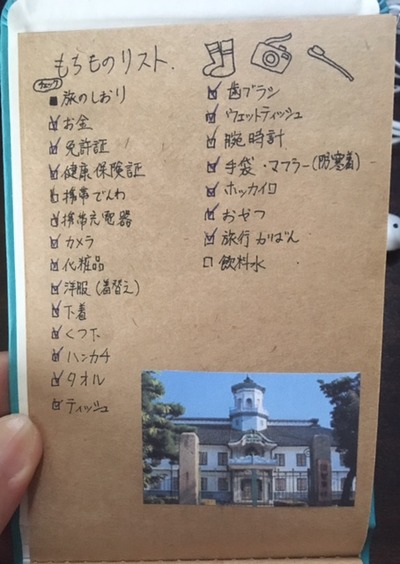 もちものリスト.
チェック
旅のしおり
お金
免許証
健康保険証
携帯でんわ
携帯充電器
カメラ
化粧品
洋服(着替え)
下着
くつ下
ハンカチ
タオル
ティッシュ
歯ブラシ
ウェットティッシュ
腕時計
手袋・マフラー(防寒着)
ホッカイロ
おやつ
旅行かばん
飲料水